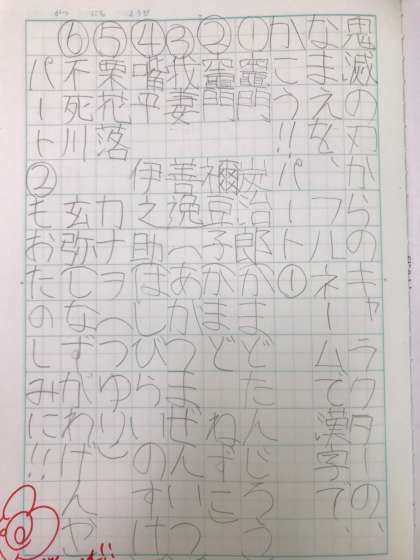 がつ にち ようび
鬼滅の刃からのキャラクターの、
なまえを、フルネームで漢字で、
かこう!!パート①
①竈門 炭治郎(かまどたんじろう
②竈門 禰豆子(かまど ねずこ
③我妻 善逸(あがつまぜんいつ
④嘴平 伊之助(はしびら いのすけ
⑤栗花落 カナヲ(つゆり
⑥不死川 玄弥(しなずがわげんや
パート②もおたのしみに!!